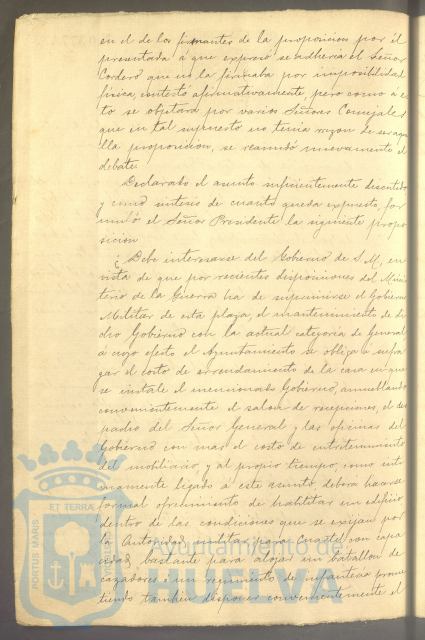 en el de los firmantes de la proposicion por él
presentada á que expresó se adheria el Señor
Cordero que no la firmaba por imposibilidad
fisica, contestó afirmativamente pero como á es
to se objetara por varios Señores Concejales
que en tal supuesto no tenia razon de ser aque
lla proposicion, se reanudó nuevamente el
debate.
Declarado el asunto suficientemente discutido
y como sintesis de cuanto queda expuesto, for
muló el Señor Presidente la siguiente propo
sicion
¿Debe interesarse del Gobierno de S.M, en
vista de que por recientes disposiciones del Minis
terio de la Guerra ha de suprimirse el Gobierno
Militar de esta plaza, el mantenimiento de di
cho Gobierno con la actual categoria de General
á cuyo efecto el Ayuntamiento se obliga á sufra
gar el costo de arrendamiento de la casa en que
se instale el mencionado Gobierno, amueblando
convenientemente el salon de recepciones, el des
pacho del Señor General y las oficinas del
Gobierno con mas el costo de entretenimiento
del mobiliario, y al propio tiempo, como inti
mamente ligado á este asunto, deberá hacerse
formal ofrecimiento de habilitar un edificio
dentro de las condiciones que se exijan por
la Autoridad militar para Cuartel con capa
cidad bastante para alojar un batallon de
cazadores ó un regimiento de infanteria prome
tiendo tambien disponer convenientemente el
PORTUS MARIS ET TERRÆ CUSTODIA
Ayuntamiento de
HUELVA